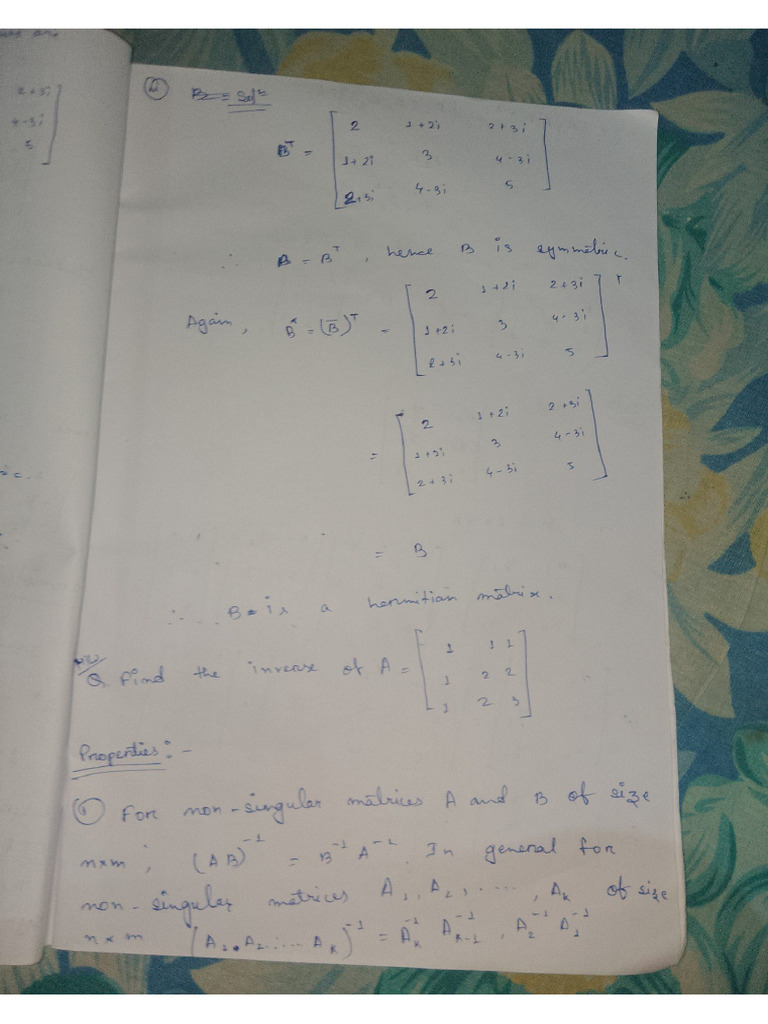 2+3i
4-3i
5
(ii) B2 = Solⁿ
Bᵀ = [ 2 1+2i 2+3i
1+2i 3 4-3i
2+3i 4-3i 5 ]
∴ B = Bᵀ, hence B is symmetric.
Again, B* = (B̄)ᵀ = [ 2 1+2i 2+3i
1+2i 3 4-3i
2+3i 4-3i 5 ]ᵀ
= [ 2 1+2i 2+3i
1+2i 3 4-3i
2+3i 4-3i 5 ]
= B
∴ B is a hermitian matrix.
HW
Q. Find the inverse of A = [ 1 1 1
1 2 2
1 2 3 ]
Properties:-
For non-singular matrices A and B of size
n×n; (AB)⁻¹ = B⁻¹ A⁻¹. In general for
non-singular metrices A₁, A₂, ....., Aₖ of size
n×n (A₁.A₂.....Aₖ)⁻¹ = Aₖ⁻¹ Aₖ₋₁⁻¹, A₂⁻¹ A₁⁻¹